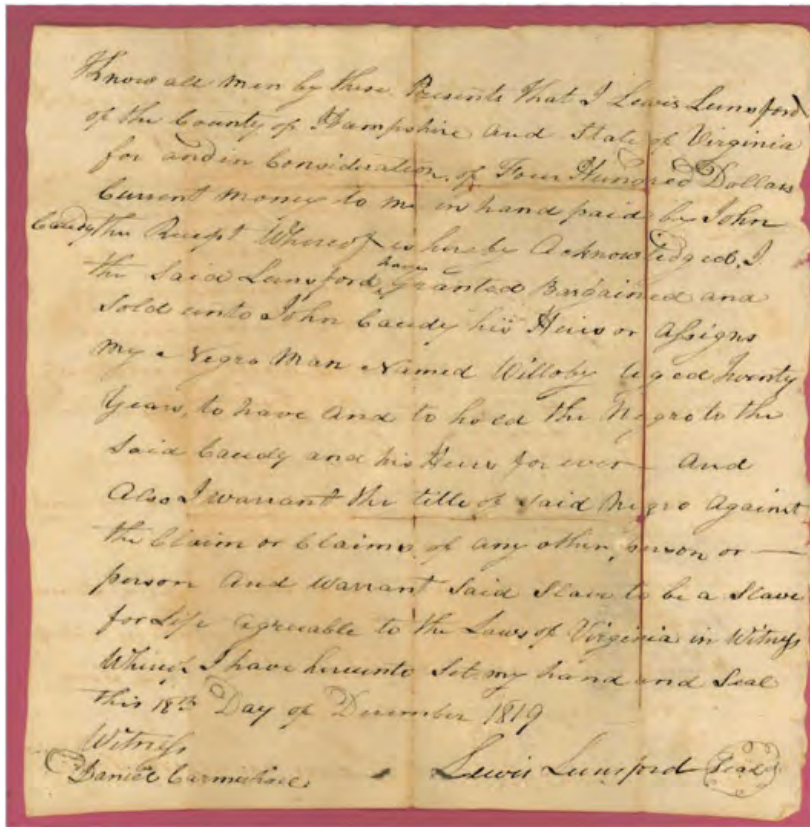 Know all men by these Presents That I Lewis Lunsford
of the County of Hampshire and State of Virginia
for and in Consideration of Four Hundred Dollars
Current money to me in hand paid by John
Caudy the Receipt Whereof is her be Acknowledged, I
the Said Lunsford, have granted Bargained and
Sold unto John Caudy his Heirs or Assigns
my Negro Man Named Willoby Aged Twenty
Years, to have And to hold the Negro to the
Said Caudy and his Heirs for ever And
Also I warrant the title of said Negro Against
the Claim or Claims of any other person or —
person And warrant Said Slave to be a Slave
for Life agreeable to the Laws of Virginia in Witness
Whereof I have hereunto Set my hand and Seal
this 18th Day of December 1819
Witness
Daniel Carmichael. Lewis Lunsford Seal